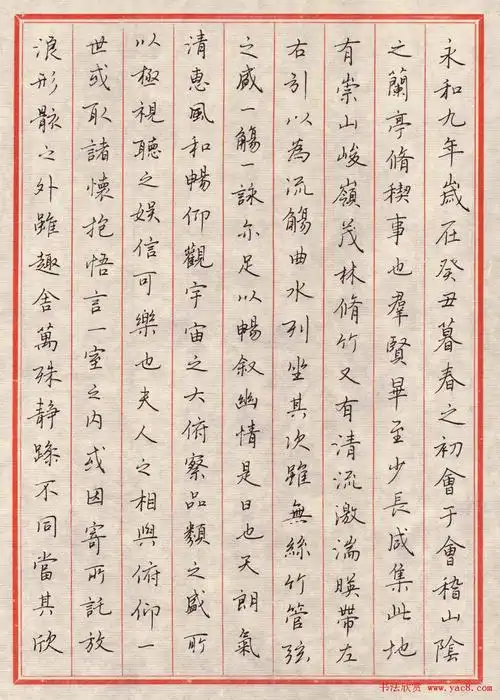 永和九年歲在癸丑暮春之初會于會稽山陰
之蘭亭脩稧事也羣賢畢至少長咸集此地
有崇山峻嶺茂林脩竹又有清流激湍暎帶左
右引以為流觴曲水列坐其次雖無絲竹管弦
之盛一觴一詠亦足以暢叙幽情是日也天朗氣
清惠風和暢仰觀宇宙之大俯察品類之盛所
以極視聽之娱信可樂也夫人之相與俯仰一
世或取諸懷抱悟言一室之内或因寄所託放
浪形骸之外雖趣舍萬殊静躁不同當其欣
书法欣赏 www.yac8.com